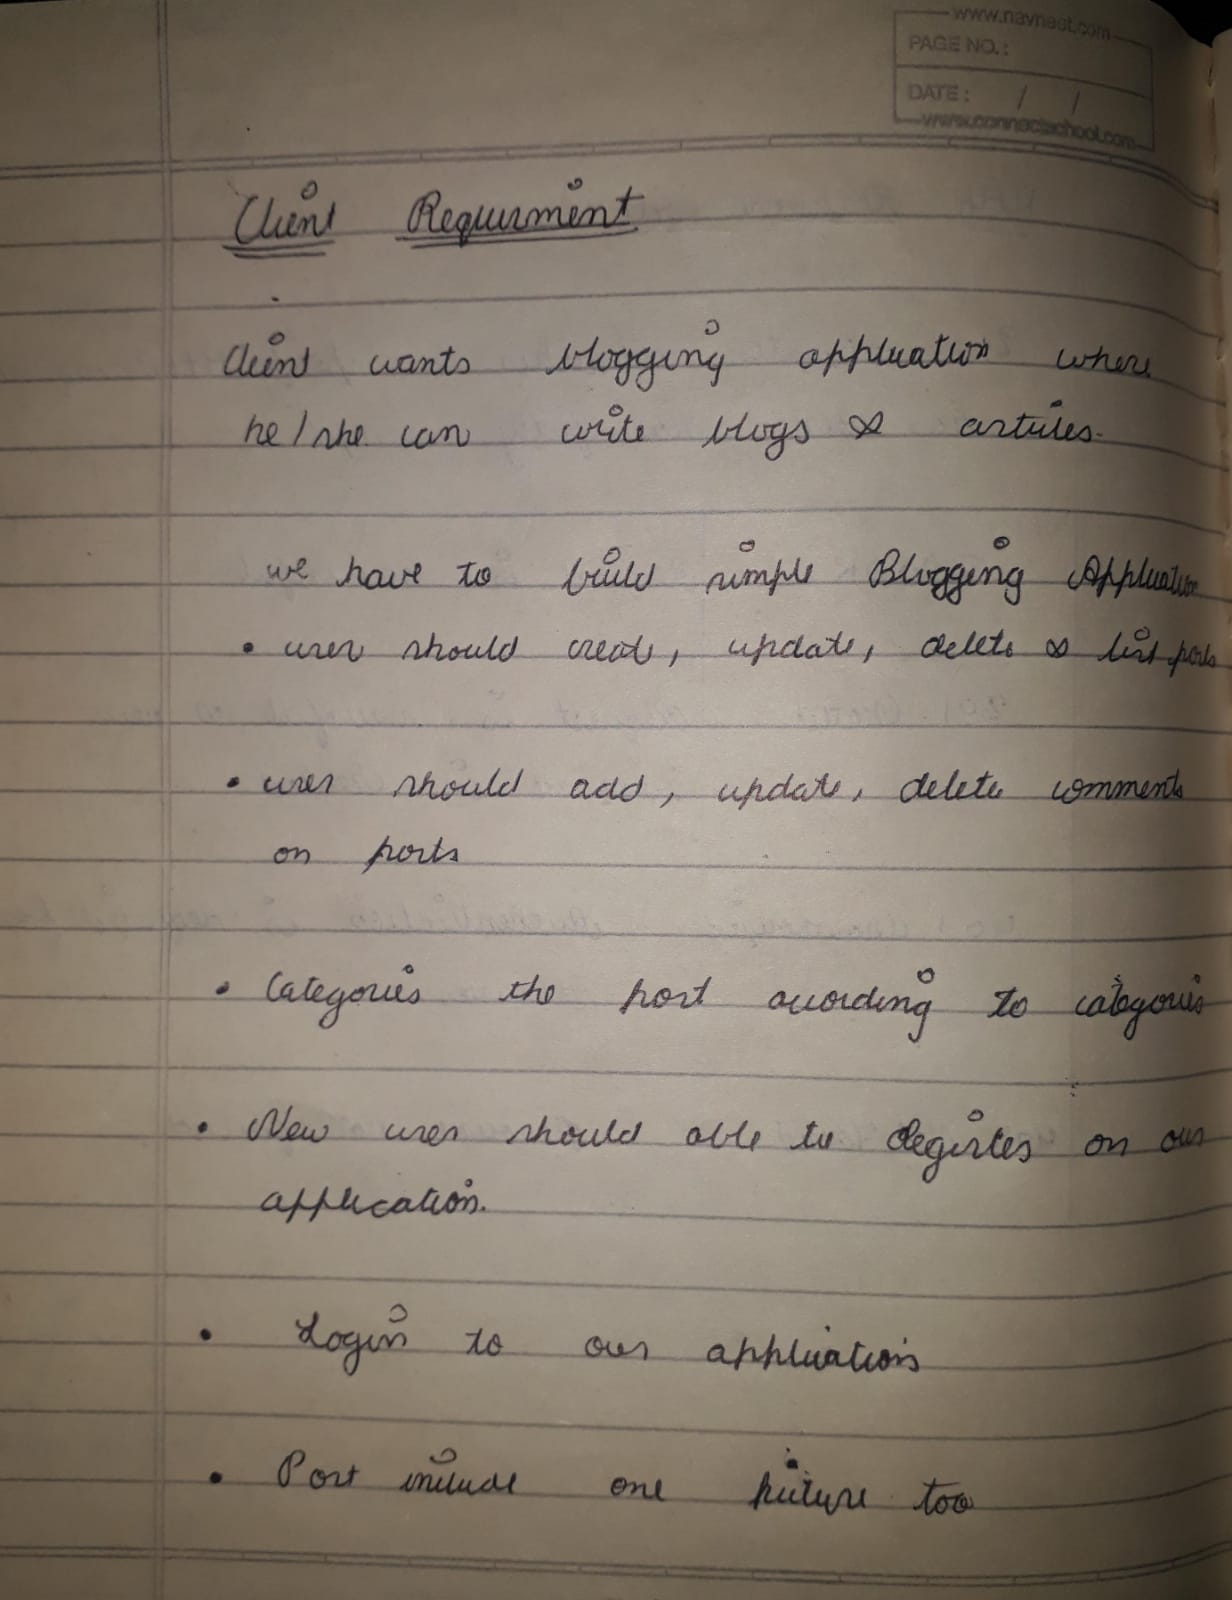 www.navneet.com
PAGE NO.:
DATE: / /
www.connectschool.com
Client Requirment
Client wants blogging application where
he/she can write blogs & articles.
we have to build simple Blogging Application
• user should create, update, delete & list posts
• user should add, update, delete comments
on posts
• Categories the post according to categories
• New user should able to Register on our
application.
• Login to our application
• Post include one picture too